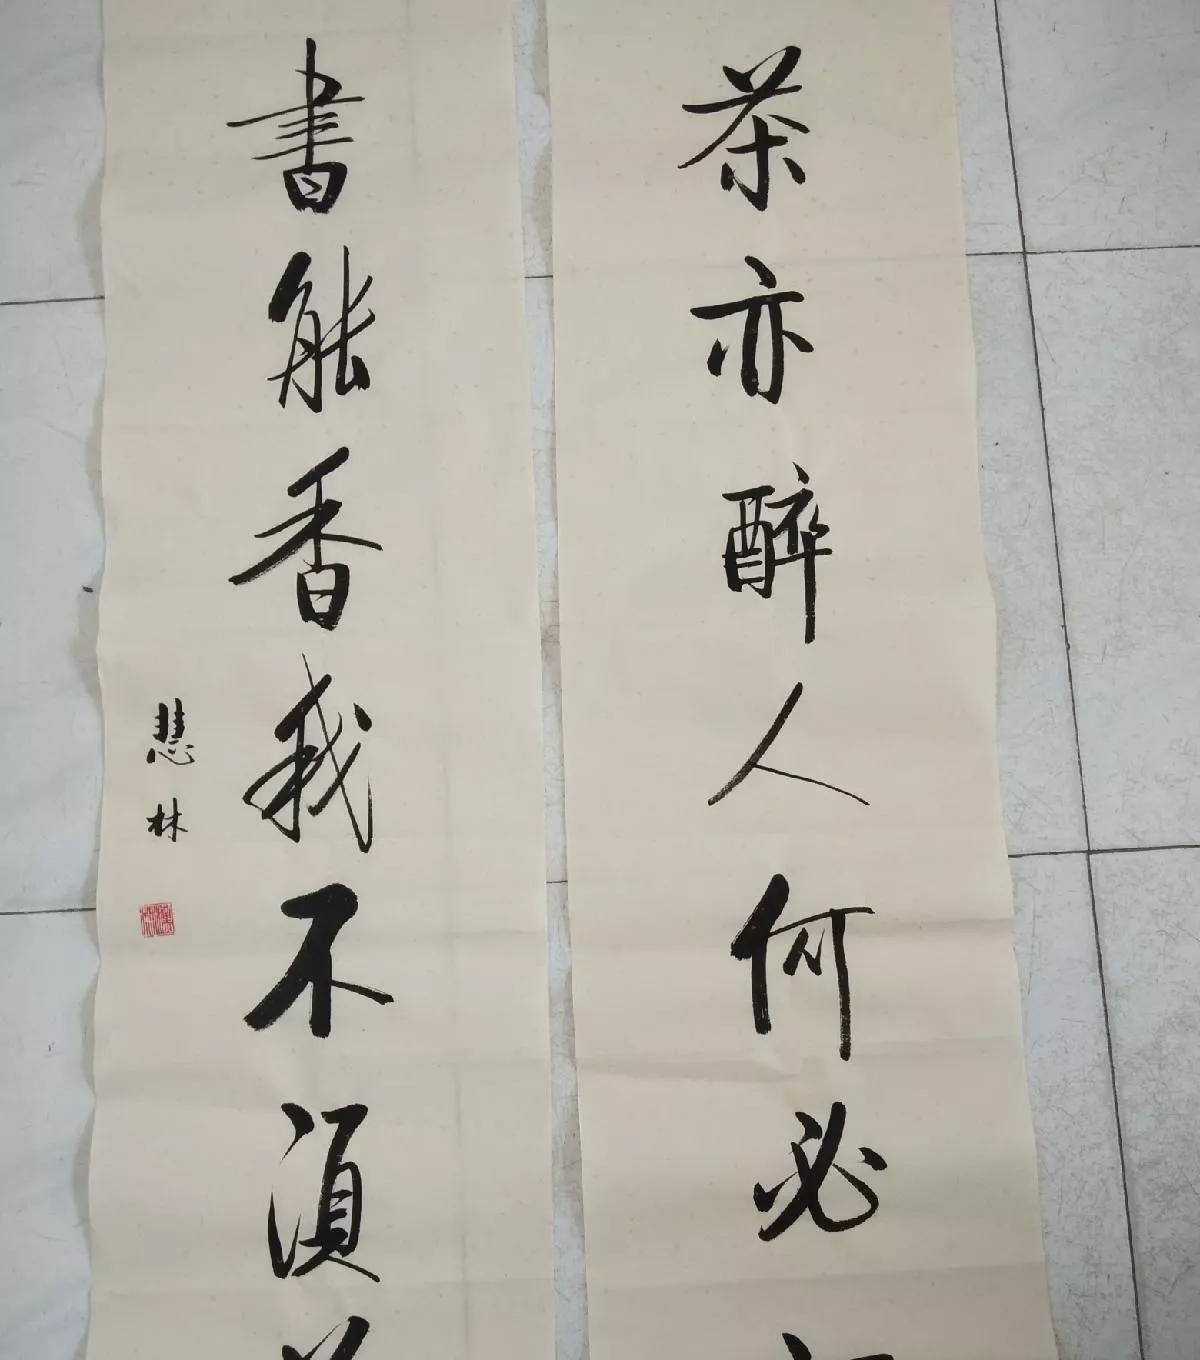 茶亦醉人何必
書能香我不須
慧林